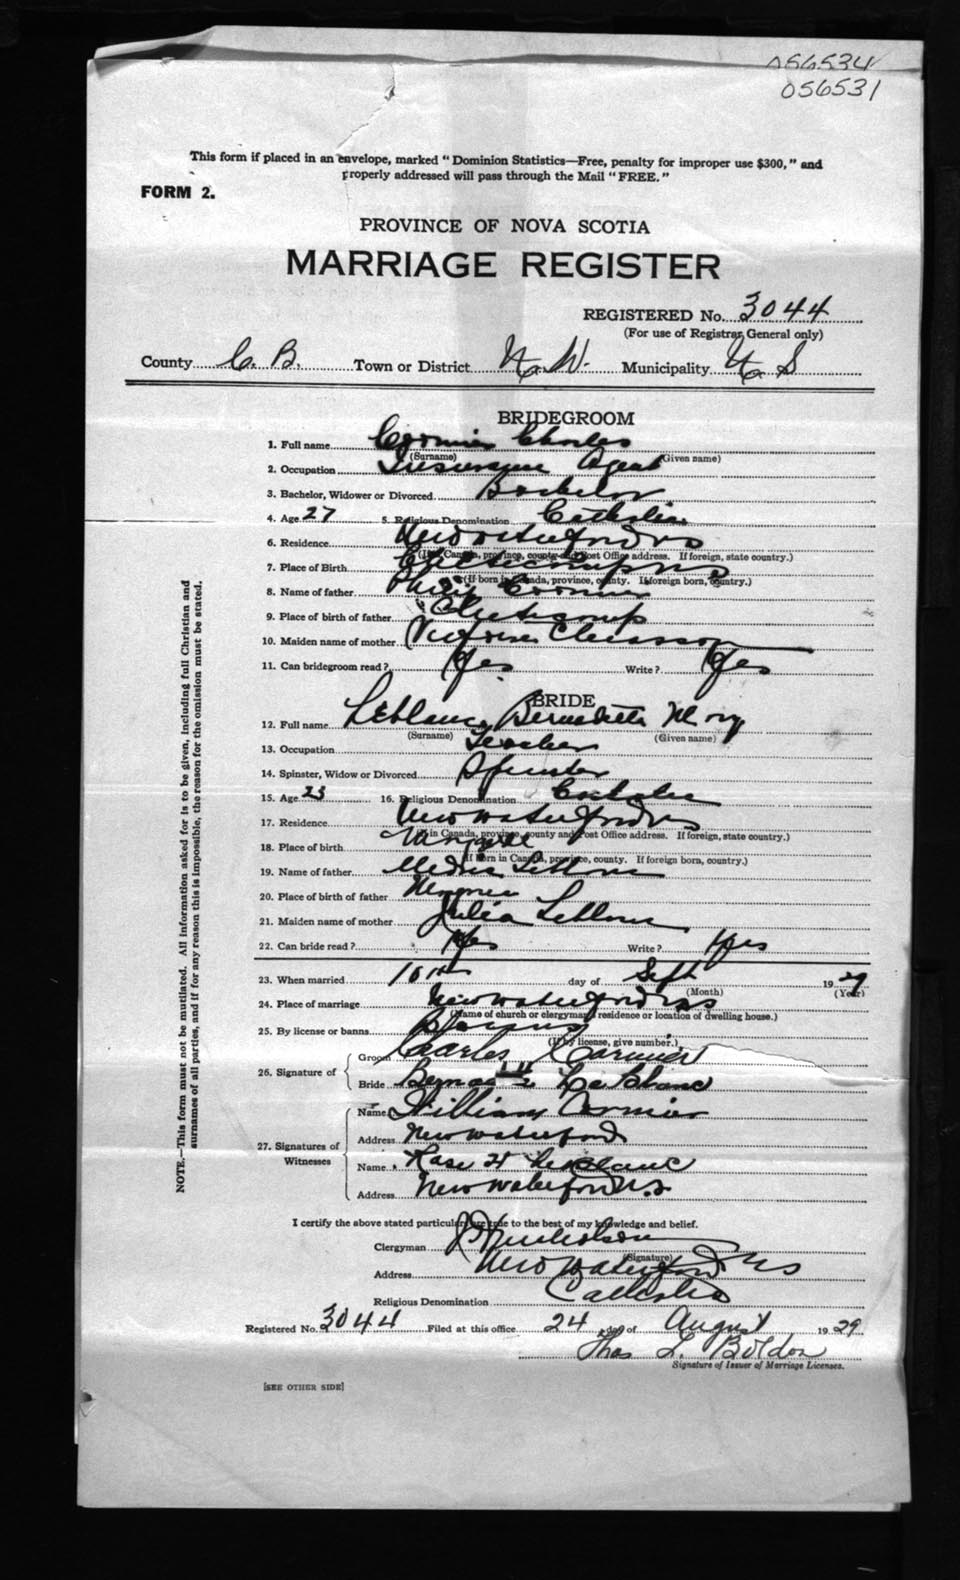 056534
056531
This form if placed in an envelope, marked "Dominion Statistics—Free, penalty for improper use $300," and
properly addressed will pass through the Mail "FREE."
FORM 2.
PROVINCE OF NOVA SCOTIA
MARRIAGE REGISTER
REGISTERED No. 3044
(For use of Registrar General only)
County C. B. Town or District N. W. Municipality N. S
BRIDEGROOM
1. Full name Cormier Charles
(Surname) (Given name)
2. Occupation Insurance Agent
3. Bachelor, Widower or Divorced Bachelor
4. Age 27 5. Religious Denomination Catholic
6. Residence New Waterford NS
(If in Canada, province, county and Post Office address. If foreign, state country.)
7. Place of Birth Cheticamp NS
(If born in Canada, province, county. If foreign born, country.)
8. Name of father Philip Cormier
9. Place of birth of father Cheticamp
10. Maiden name of mother Chiasson
11. Can bridegroom read? Yes Write? Yes
BRIDE
12. Full name LeBlanc Bernadette Mary
(Surname) (Given name)
13. Occupation Teacher
14. Spinster, Widow or Divorced Spinster
15. Age 23 16. Religious Denomination Catholic
17. Residence New Waterford NS
(If in Canada, province, county and Post Office address. If foreign, state country.)
18. Place of birth
(If born in Canada, province, county. If foreign born, country.)
19. Name of father LeBlanc
20. Place of birth of father
21. Maiden name of mother Julia LeBlanc
22. Can bride read? Yes Write? Yes
23. When married 10th day of Sept 1929
(Month) (Year)
24. Place of marriage New Waterford NS
(Name of church or clergyman, residence or location of dwelling house.)
25. By license or banns Banns
(If by license, give number.)
26. Signature of Groom Charles Cormier
Bride LeBlanc
27. Signatures of Witnesses Name William Cormier
Address New Waterford
Name Rose H LeBlanc
Address New Waterford N.S.
I certify the above stated particulars are true to the best of my knowledge and belief.
Clergyman
(Signature)
Address New Waterford NS
Religious Denomination Catholic
Registered No. 3044 Filed at this office 24 day of August 1929
Thos L. Boldon
Signature of Issuer of Marriage Licenses.
[SEE OTHER SIDE]
NOTE.—This form must not be mutilated. All information asked for is to be given, including full Christian and
surnames of all parties, and if for any reason this is impossible, the reason for the omission must be stated.